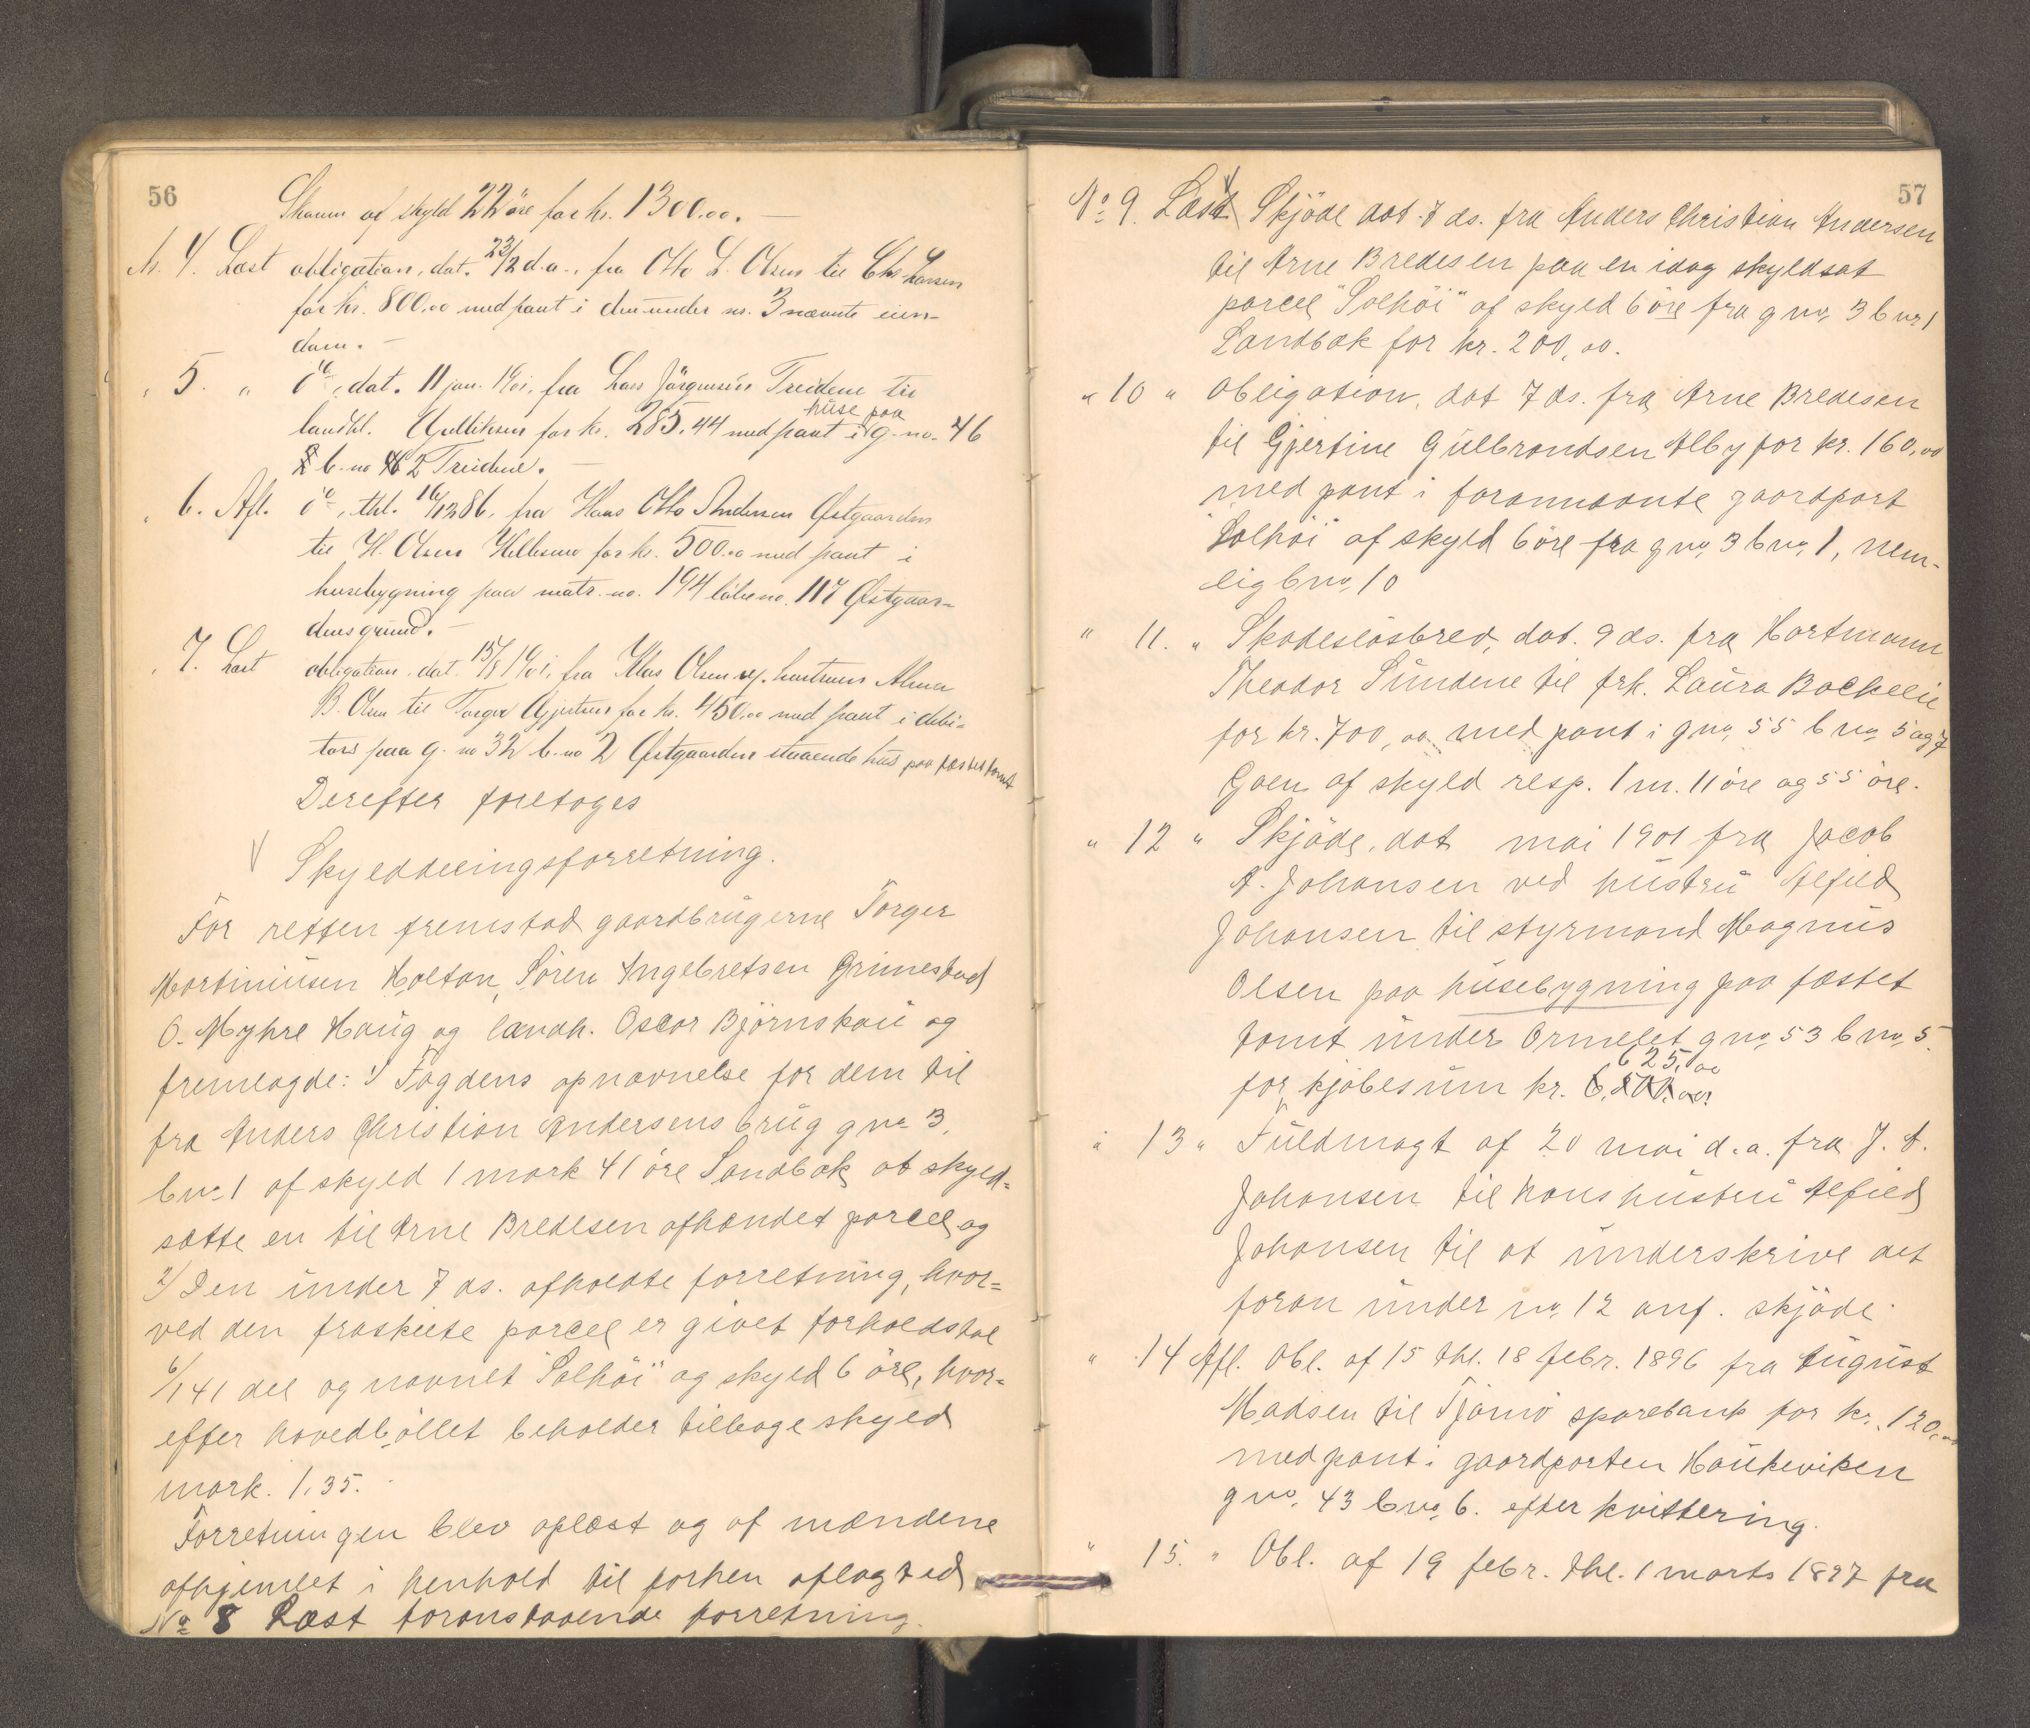 56
Skaum af skyld 22 øre for kr. 1300.00. —
No. 4. Læst obligation, dat. 23/2 d.a., fra Otto L. Olsen til Chr. Larsen
for kr. 800,00 med pant i den under no. 3 nævnte eien-
dom. —
" 5. " do, dat. 11 jan. 1901, fra Lars Jörgensen Treidene til
landhl. Gullichsen for kr. 285.44 med pant i huse paa g. no. 46
b. no 2 Treidene. —
" 6. Afl. do, thl. 16/12 86, fra Hans Otto Andersen Østgaarden
til H. Olsen Hellesmo for kr. 500.00 med pant i
husebygning paa matr. no. 194 löbeno. 117 Østgaar-
dens grund. —
" 7. Læst obligation, dat. 15/8 1901, fra Klas Olsen v/ hustruen Alma
B. Olsen til Torger Gjertsen for kr. 450.00 med pant i debi-
tors paa g. no 32 b. no 2 Østgaarden staaende hus paa fæstet tomt
Derefter foretoges
Skylddelingsforretning.
For retten fremstod gaardbrugerne Torger
Martiniusen Holtan, Sören Ingebretsen Grimestad
O. Myhre Haug og landh. Oscar Björnskau og
fremlagde: 1/ Fogdens opnævnelse for dem til
fra Anders Christian Andersens brug gno 3,
bno 1 af skyld 1 mark 41 öre Sandbæk at skyld=
sætte en til Arne Bredesen afhændet parcel, og
2/ Den under 7 ds. afholdte forretning, hvor=
ved den fraskilte parcel er givet forholdstal
6/141 del og navnet "Solhöi" og skyld 6 öre, hvor=
efter hovedbøllet beholder tilbage skyld
mark. 1,35.
Forretningen blev oplæst og af mændene
afhjemlet i henhold til forhen aflagt ed
No 8 Læst foranstaaende forretning.
57
No 9. Læst Skjöde dat. 7 ds. fra Anders Christian Andersen
til Arne Bredesen paa en idag skyldsat
parcel "Solhöi" af skyld 6 öre fra gno, 3 bno 1
Sandbæk for kr. 200,00.
" 10 " Obligation, dat 7 ds. fra Arne Bredesen
til Gjertine Gulbrandsen Alby for kr. 160,00
med pant i forannævnte gaardpart
"Solhöi" af skyld 6 öre fra gno, 3 bno, 1, nem-
lig bno, 10
" 11. " Skadeslösbrev, dat. 9 ds. fra Hartmann
Theodor Sundene til frk. Laura Backelie
for kr. 700,00 med pant i gno, 55 bno, 5 og 7
Goen af skyld resp. 1 m. 11 öre og 55 öre.
" 12 " Skjöde, dat mai 1901 fra Jacob
A. Johansen ved hustru Alfild
Johansen til styrmand Magnus
Olsen paa husebygning paa fæstet
tomt under Ormelet gno, 53 bno, 5.
for kjöbesum kr. 625,00
" 13 " Fuldmagt af 20 mai d.a. fra J. A.
Johansen til hans hustru Alfild
Johansen til at underskrive det
foran under no, 12 anf. skjöde.
" 14 Afl. Obl. af 15 thl. 18 febr. 1896 fra August
Madsen til Tjömö sparebank for kr. 120,00
med pant i gaardparten Haukeviken
gno, 43 bno, 6. efter kvittering.
" 15. " Obl. af 19 febr. thl. 1 marts 1897 fra